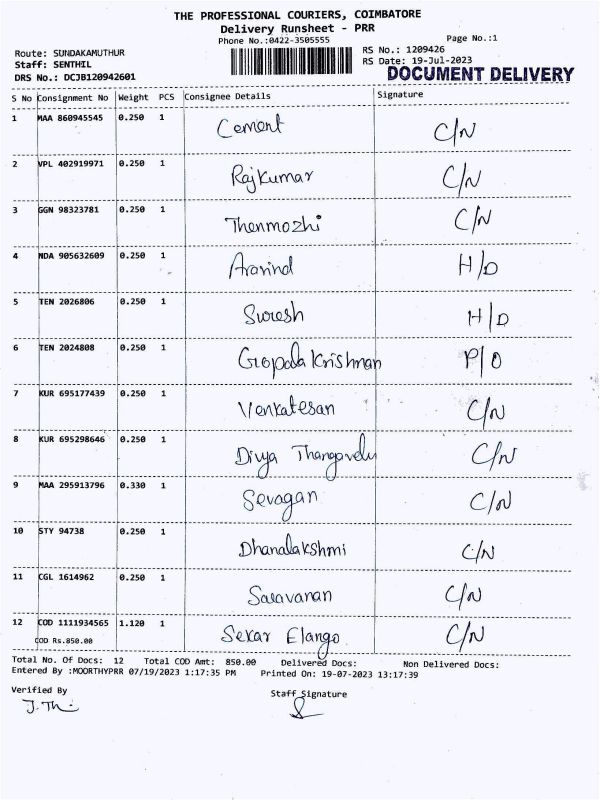 THE PROFESSIONAL COURIERS, COIMBATORE
Delivery Runsheet - PRR
Phone No.:0422-3505555
Page No.:1
Route: SUNDAKAMUTHUR
RS No.: 1209426
Staff: SENTHIL
RS Date: 19-Jul-2023
DRS No.: DCJB120942601
DOCUMENT DELIVERY
S No Consignment No Weight PCS Consignee Details Signature
1 MAA 860945545 0.250 1 Cement C/N
2 VPL 402919971 0.250 1 Rajkumar C/N
3 GGN 98323781 0.250 1 Thenmozhi C/N
4 NDA 905632609 0.250 1 Aravind H/D
5 TEN 2026806 0.250 1 Suresh H/D
6 TEN 2024808 0.250 1 Gopala Krishnan P/O
7 KUR 695177439 0.250 1 Venkatesan C/N
8 KUR 695298646 0.250 1 Divya Thangavelu C/N
9 MAA 295913796 0.330 1 Sevagan C/N
10 STY 94738 0.250 1 Dhanalakshmi C/N
11 CGL 1614962 0.250 1 Saravanan C/N
12 COD 1111934565 1.120 1 Sekar Elango C/N
COD Rs.850.00
Total No. Of Docs: 12 Total COD Amt: 850.00 Delivered Docs: Non Delivered Docs:
Entered By :MOORTHYPRR 07/19/2023 1:17:35 PM Printed On: 19-07-2023 13:17:39
Verified By
Staff Signature